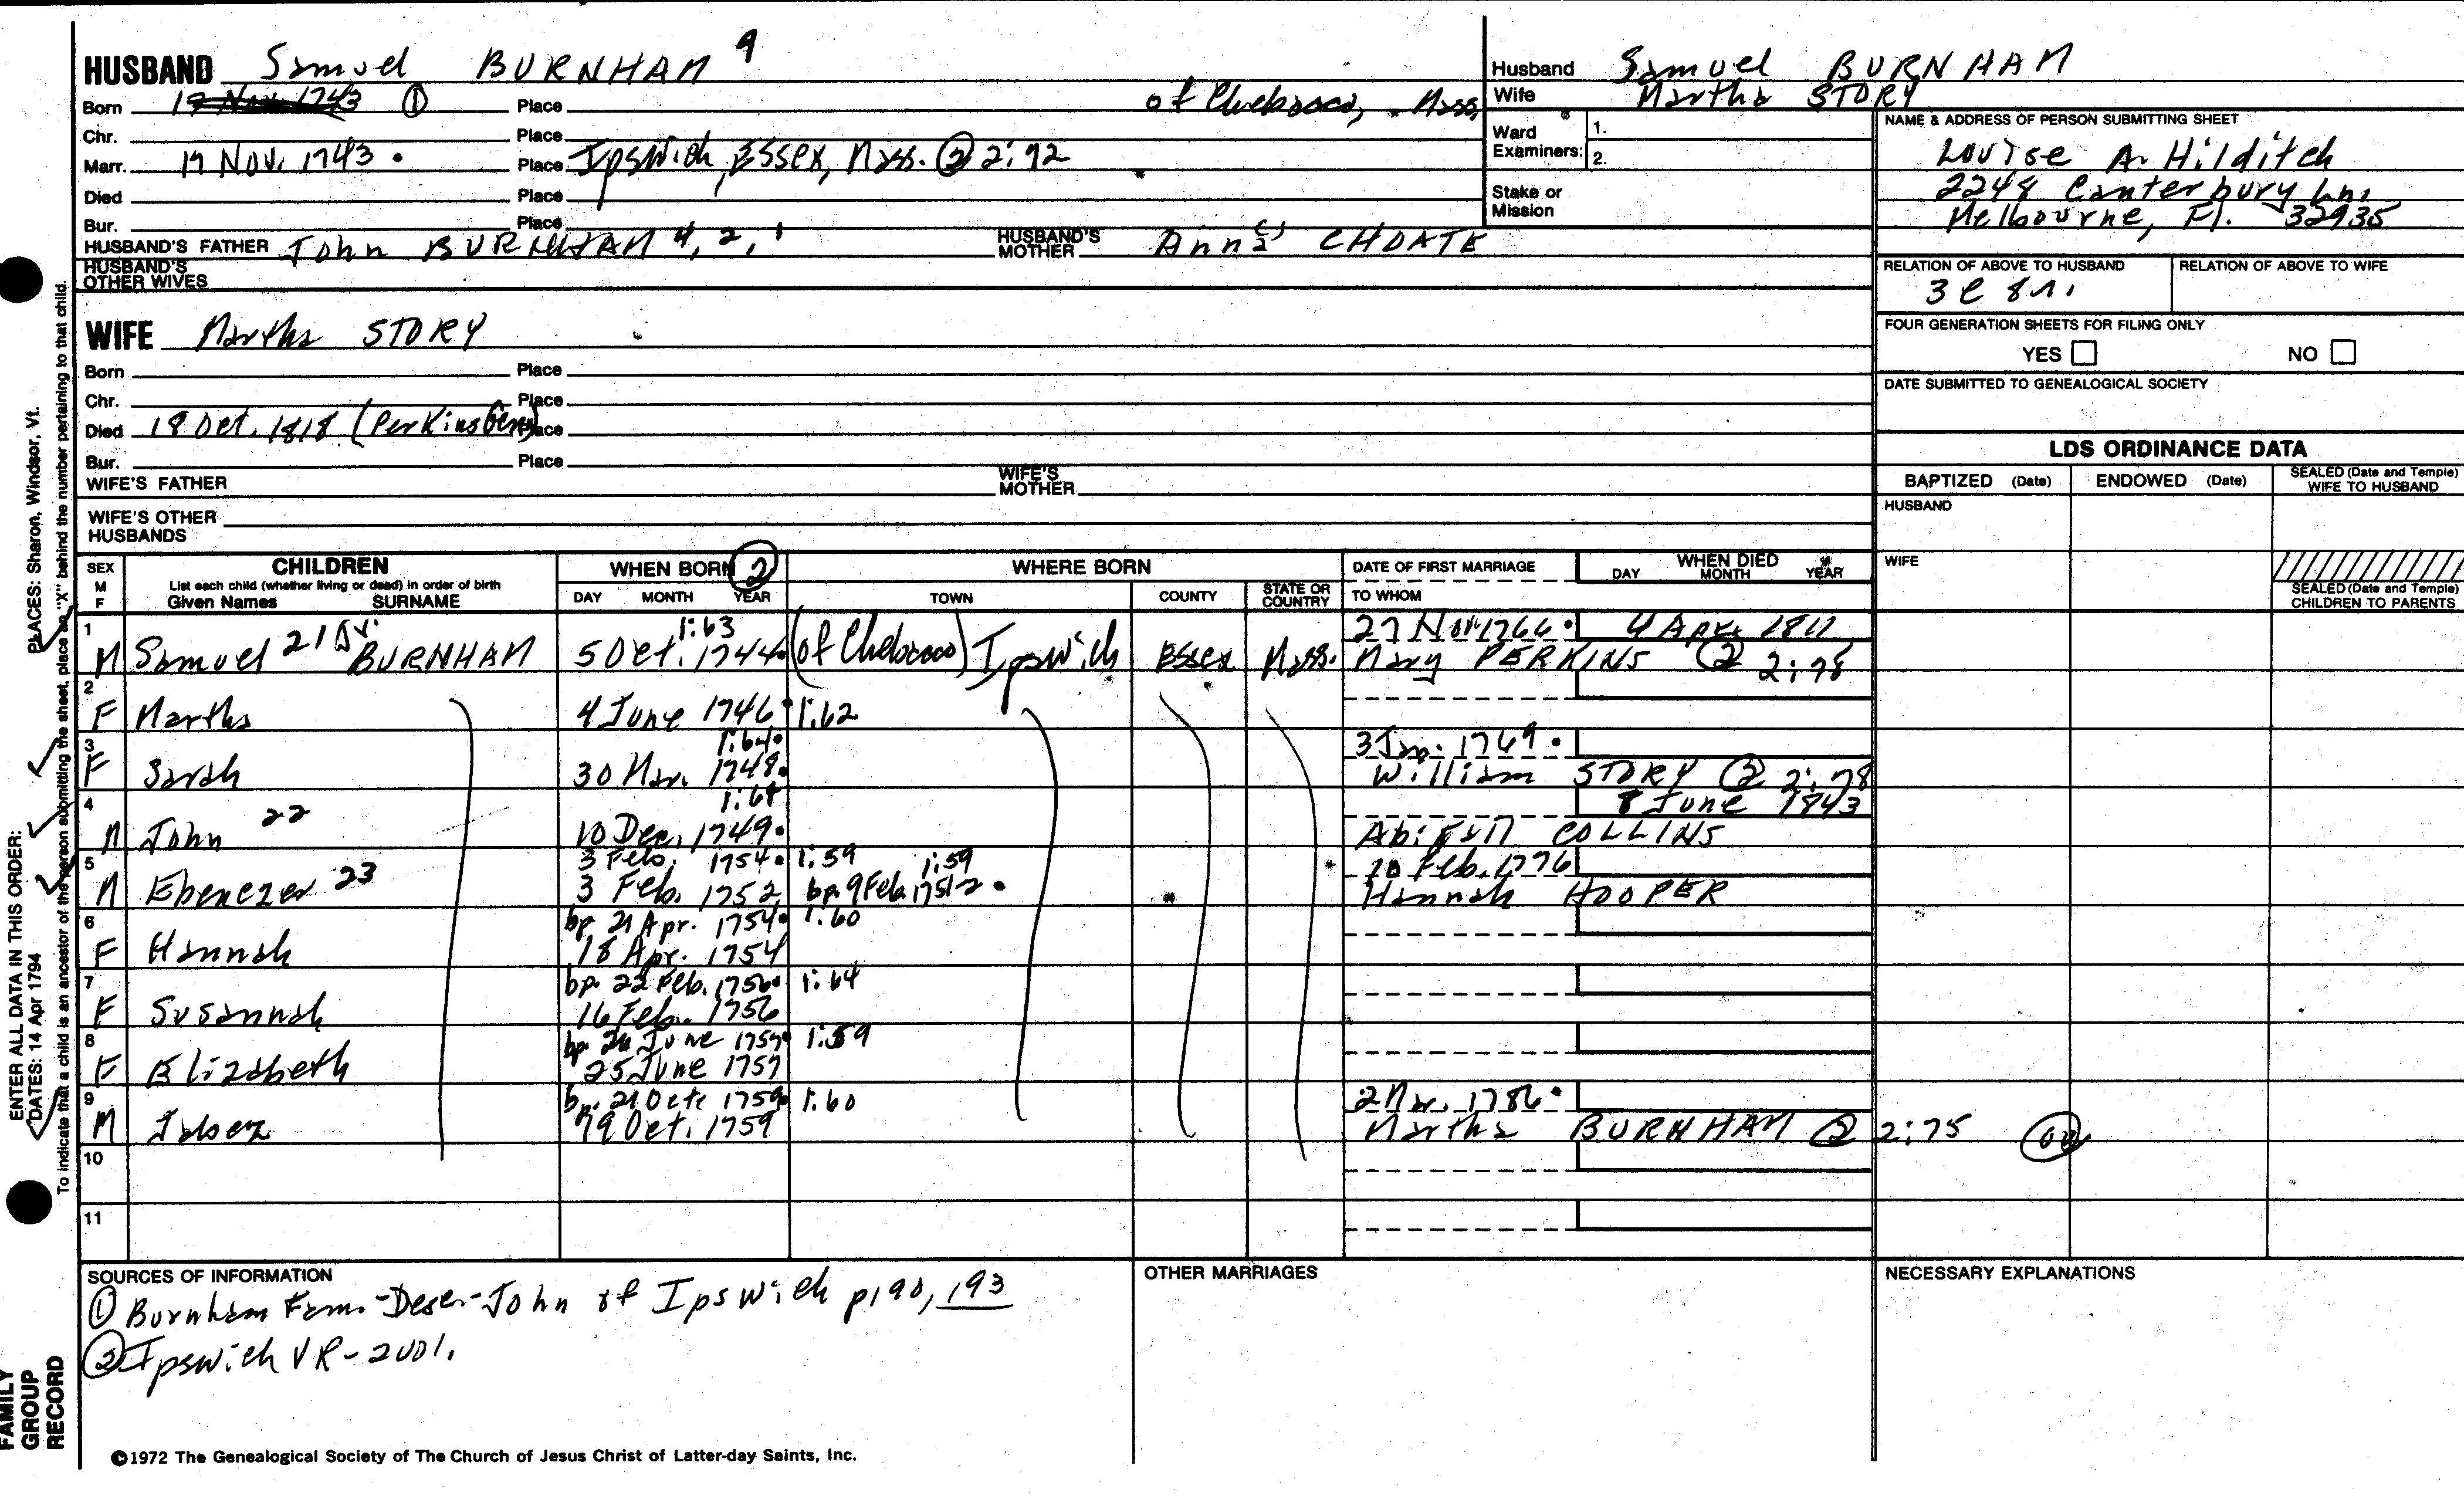 HUSBAND Samuel BURNHAM 9
Born 17 Nov. 1743 ① Place of Chebacco, Mass.
Chr. Place
Marr. 17 Nov. 1743. Place Ipswich, Essex, Mass. ② 2:92
Died Place
Bur. Place
HUSBAND'S FATHER John BURNHAM 4, 2, 1 HUSBAND'S MOTHER Anna CHOATE
HUSBAND'S OTHER WIVES
Husband Samuel BURNHAM
Wife Martha STORY
Ward Examiners: 1.
2.
Stake or Mission
NAME & ADDRESS OF PERSON SUBMITTING SHEET
Louise A. Hilditch
2248 Canterbury Ln.
Melbourne, Fl. 32935
RELATION OF ABOVE TO HUSBAND RELATION OF ABOVE TO WIFE
3 C
FOUR GENERATION SHEETS FOR FILING ONLY
YES NO
DATE SUBMITTED TO GENEALOGICAL SOCIETY
WIFE Martha STORY
Born Place
Chr. Place
Died 18 Oct. 1818 (Perkins Gen.) Place
Bur. Place
WIFE'S FATHER WIFE'S MOTHER
WIFE'S OTHER HUSBANDS
LDS ORDINANCE DATA
BAPTIZED (Date) ENDOWED (Date) SEALED (Date and Temple) WIFE TO HUSBAND
HUSBAND
WIFE
SEALED (Date and Temple) CHILDREN TO PARENTS
SEX M F CHILDREN List each child (whether living or dead) in order of birth Given Names SURNAME
WHEN BORN ② DAY MONTH YEAR
WHERE BORN TOWN COUNTY STATE OR COUNTRY
DATE OF FIRST MARRIAGE TO WHOM
WHEN DIED DAY MONTH YEAR
1 1:63 27 Nov 1766. 4 Apr. 1811
M Samuel 21 BURNHAM 5 Oct. 1744. (of Chebacco) Ipswich Essex Mass. Mary PERKINS ② 2:78
2
F Martha 4 June 1746. 1:62
3 1:64. 3 Jan. 1769.
F Sarah 30 Mar. 1748. William STORY ② 2:78
4 1:61 8 June 1843
M John 22 10 Dec. 1749. Abigail COLLINS
5 3 Feb. 1754. 1:59 1:59 10 Feb. 1776
M Ebenezer 23 3 Feb. 1752 bp. 9 Feb. 1751-2. Hannah HOOPER
6 bp. 21 Apr. 1754. 1:60
F Hannah 18 Apr. 1754
7 bp. 22 Feb. 1756. 1:64
F Susannah 16 Feb. 1756
8 bp. 26 June 1757. 1:59
F Elizabeth 25 June 1757
9 bp. 21 Oct. 1759. 1:60 2 Mar. 1786.
M Jabez 19 Oct. 1759 Martha BURNHAM ② 2:75
10
11
SOURCES OF INFORMATION
① Burnham Fam.-Desc-John of Ipswich p190, 193
② Ipswich VR - 2001.
OTHER MARRIAGES
NECESSARY EXPLANATIONS
©1972 The Genealogical Society of The Church of Jesus Christ of Latter-day Saints, Inc.
FAMILY GROUP RECORD
ENTER ALL DATA IN THIS ORDER:
DATES: 14 Apr 1794
PLACES: Sharon, Windsor, Vt.
To indicate that a child is an ancestor of the person submitting the sheet, place an "X" behind the number pertaining to that child.